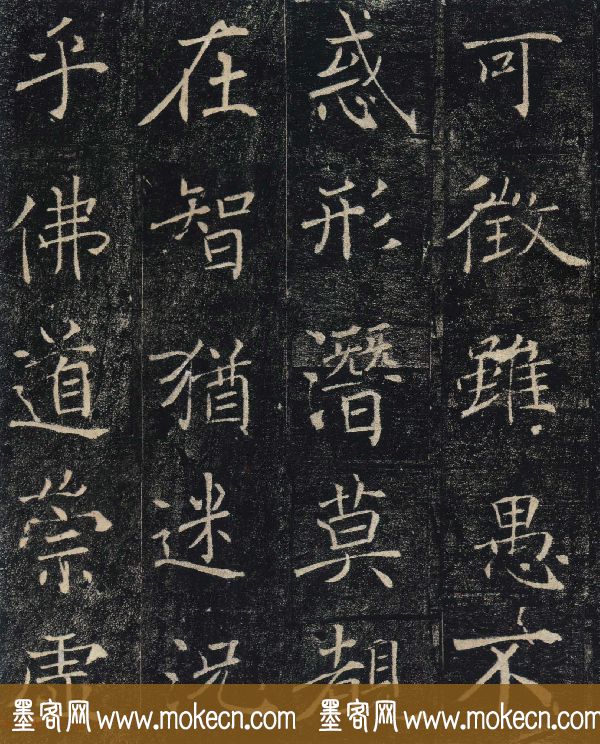 可徵雖愚不
惑形潛莫覩
在智猶迷況
乎佛道崇虛
墨客网 www.mokecn.com 墨客网 www.mokecn.com